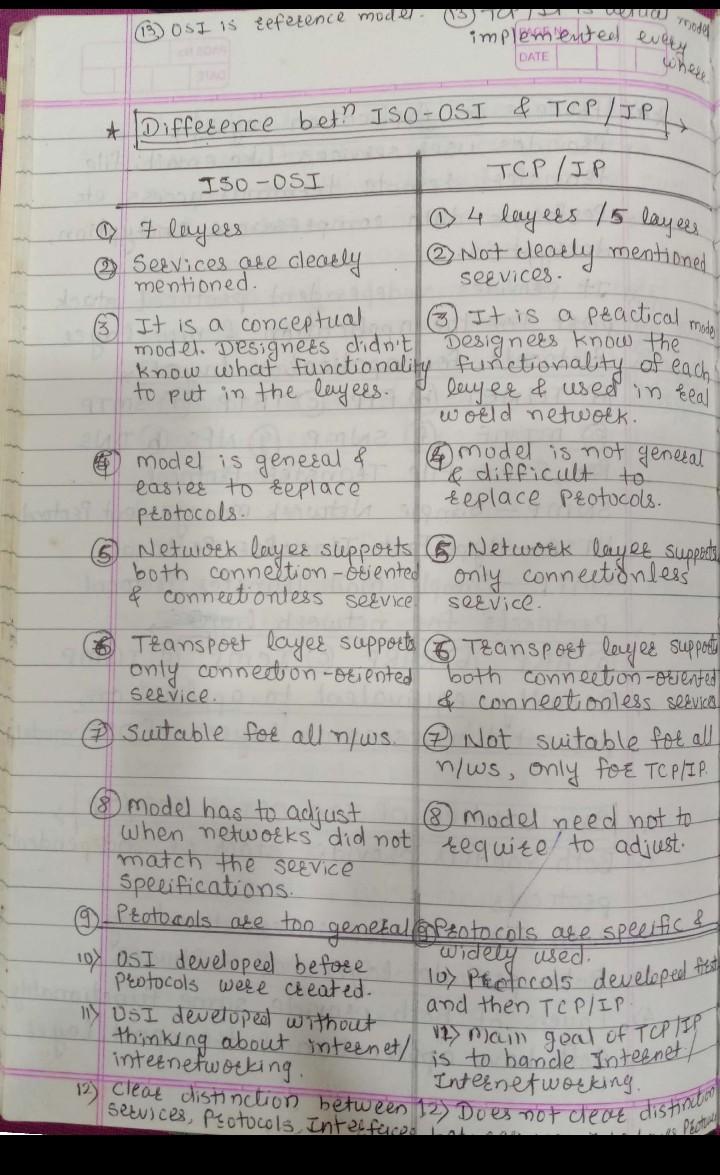 (13) OSI is reference model.
(13) TCP/IP is actual model
implemented every
where.
PAGE No.
DATE
* Difference betn ISO-OSI & TCP/IP →
ISO-OSI
① 7 layers
② Services are clearly
mentioned.
③ It is a conceptual
model. Designers didn't
know what functionality
to put in the layers.
④ model is general &
easier to replace
protocols.
⑤ Network layer supports
both connection-oriented
& connectionless service
⑥ Transport layer supports
only connection-oriented
service.
⑦ Suitable for all n/ws.
⑧ model has to adjust
when networks did not
match the service
specifications.
⑨ Protocols are too general
10) OSI developed before
protocols were created.
11) OSI developed without
thinking about internet/
internetworking.
12) Clear distinction between
services, Protocols, Interfaces
TCP/IP
① 4 layers / 5 layers
② Not clearly mentioned
services.
③ It is a practical model
Designers know the
functionality of each
layer & used in real
world network.
④ model is not general
& difficult to
replace protocols.
⑤ Network layer supports
only connectionless
service.
⑥ Transport layer supports
both connection-oriented
& connectionless services
⑦ Not suitable for all
n/ws, only for TCP/IP.
⑧ Model need not to
require to adjust.
⑨ Protocols are specific &
widely used.
10) Protocols developed first
and then TCP/IP.
11) Main goal of TCP/IP
is to hande Internet/
Internetworking.
12) Does not clear distinction